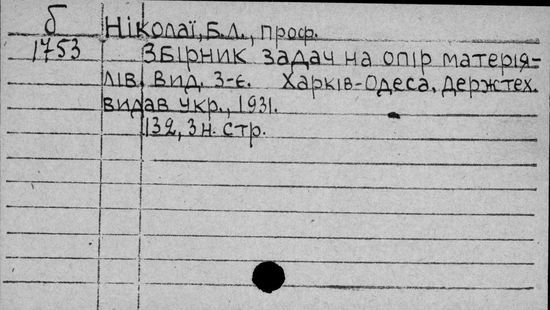 б
1753
Ніколаї, Б.Л., проф.
Збірник задач на опір матерія-
лів. Вид. 3-є. Харків-Одеса, Держтех.
видав укр., 1931.
132, 3 н. стр.